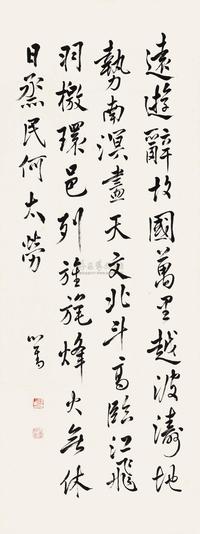 遠遊辭故國萬里越波濤地
勢南溟盡天文北斗高臨江飛
羽檄環邑列旌旄烽火無休
日烝民何太勞
心畬